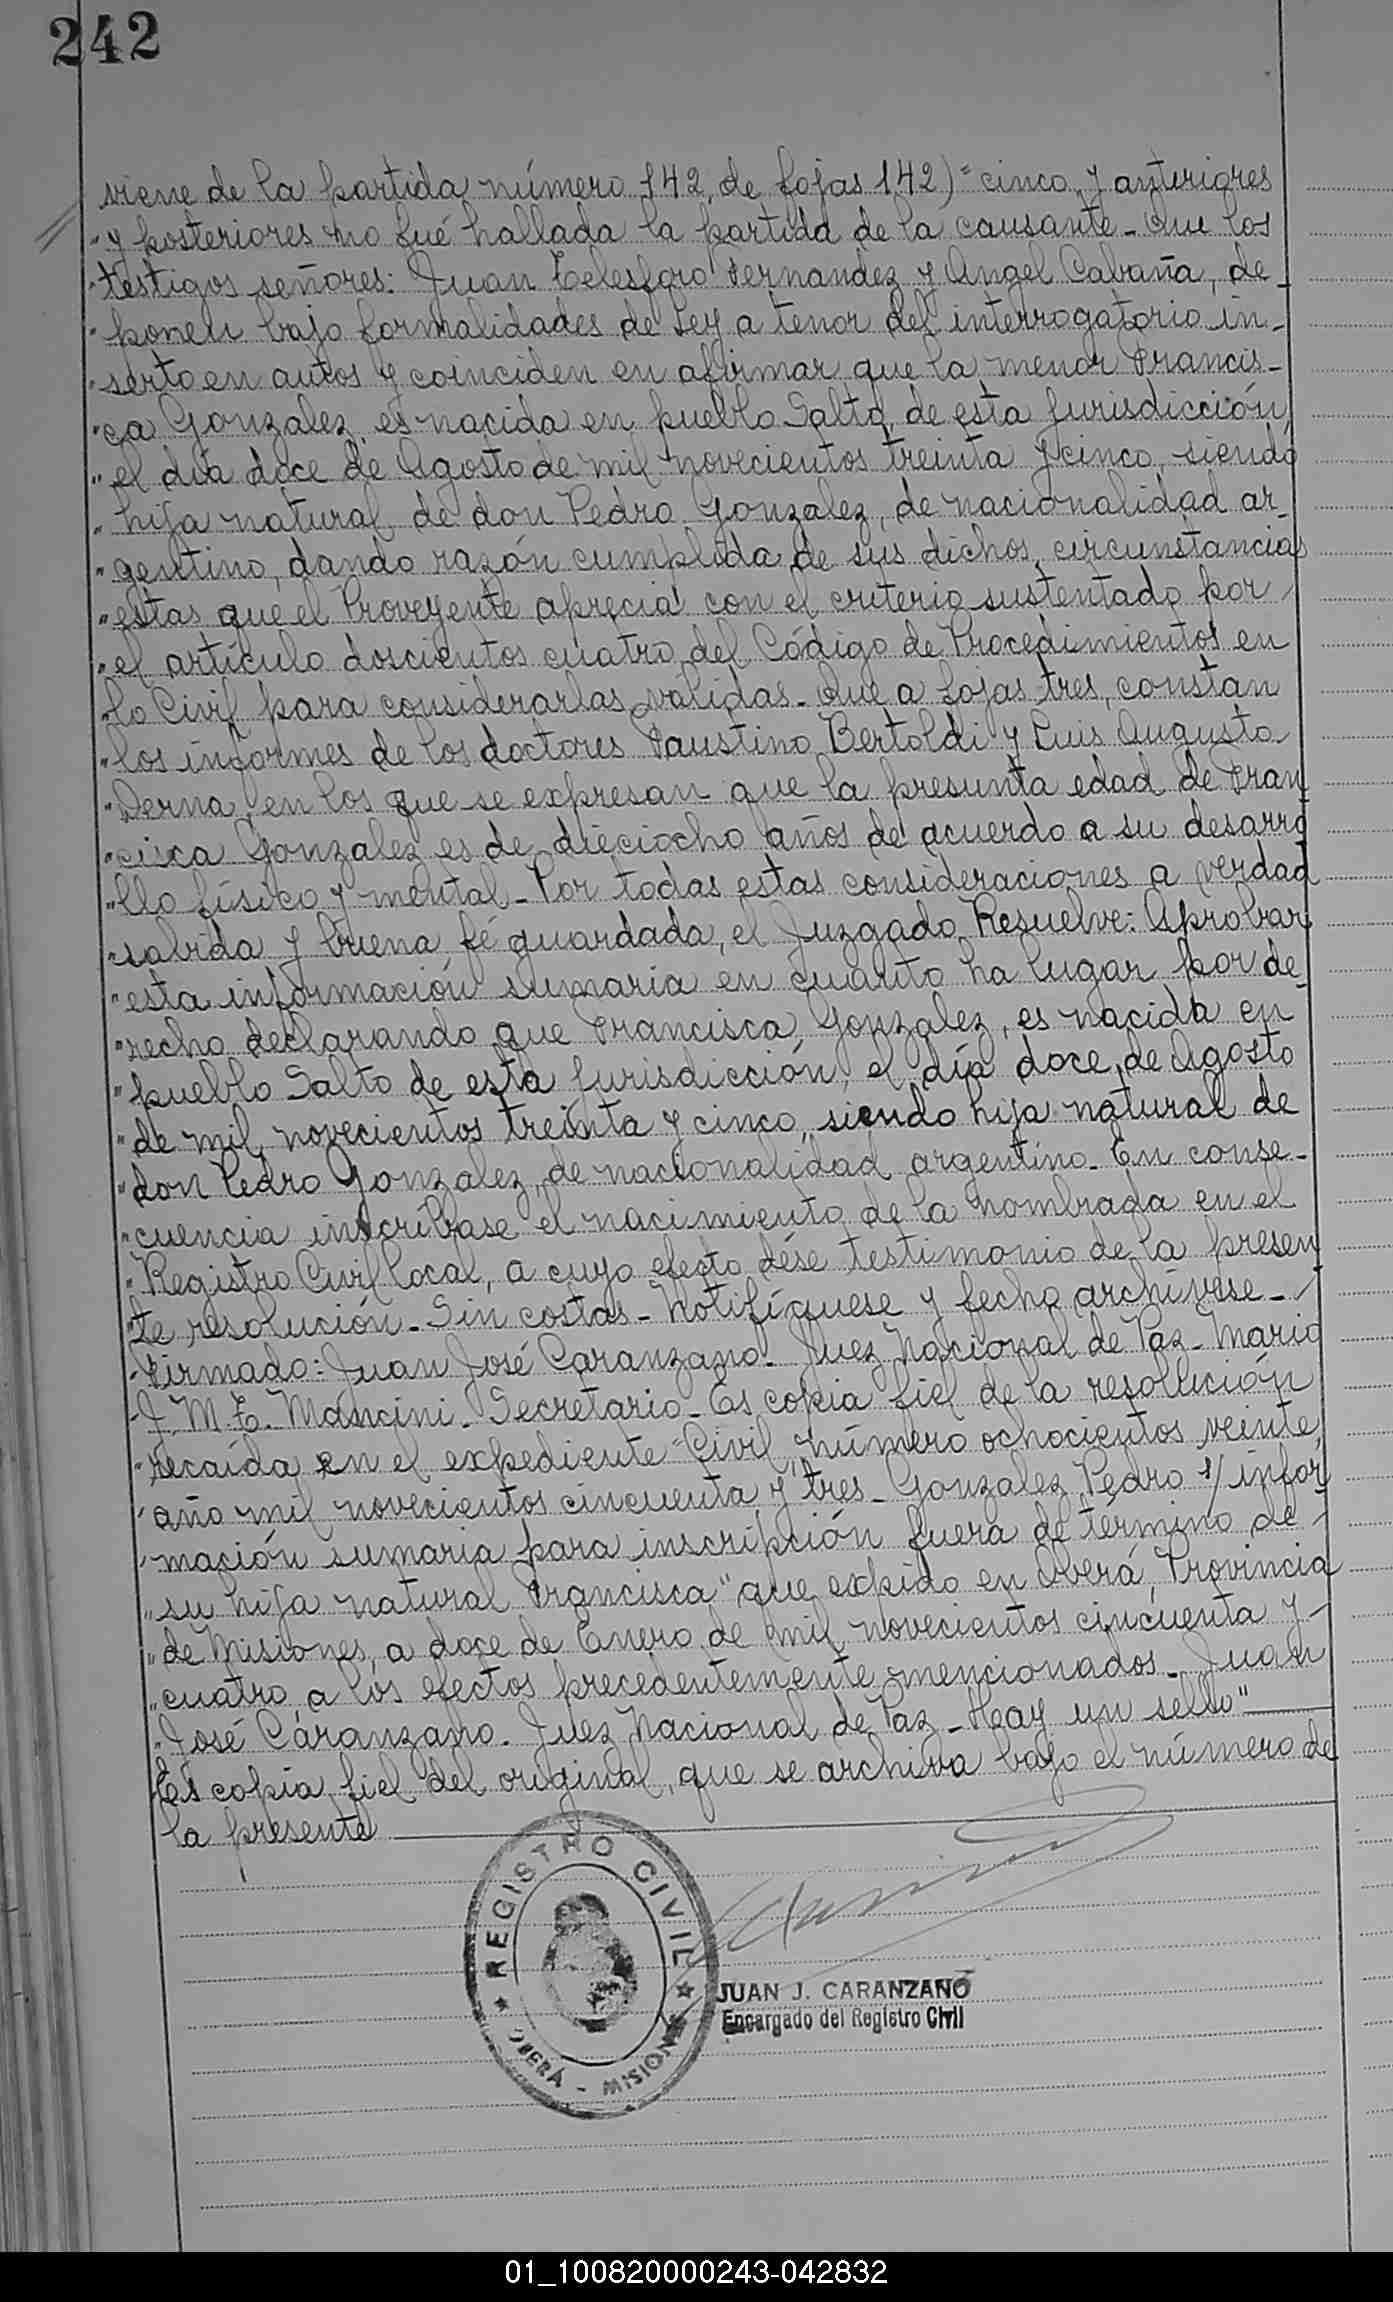 242
viene de la partida número 142, de fojas 142) "cinco, y anteriores
"y posteriores no fué hallada la partida de la causante - Que los
"testigos señores: Juan Telesforo Fernandez y Angel Cabaña, de-
"ponen bajo formalidades de Ley a tenor del interrogatorio in-
"serto en autos y coinciden en afirmar que la menor Francis-
"ca Gonzalez, es nacida en pueblo Salto, de esta jurisdicción,
"el día doce de Agosto de mil novecientos treinta y cinco, siendo
"hija natural de don Pedro Gonzalez, de nacionalidad ar-
"gentino, dando razón cumplida de sus dichos, circunstancias
"estas que el Proveyente aprecia con el criterio sustentado por
"el artículo doscientos cuatro del Código de Procedimientos en
"lo Civil para considerarlas válidas - Que a fojas tres, constan
"los informes de los doctores Faustino Bertoldi y Luis Augusto
"Derna, en los que se expresan que la presunta edad de Fran
"cisca Gonzalez es de dieciocho años de acuerdo a su desarro
"llo físico y mental - Por todas estas consideraciones a verdad
"sabida y buena fé guardada, el Juzgado Resuelve: Aprobar
"esta información sumaria en cuanto ha lugar por de-
"recho declarando que Francisca Gonzalez, es nacida en
"pueblo Salto de esta jurisdicción, el día doce de Agosto
"de mil novecientos treinta y cinco, siendo hija natural de
"don Pedro Gonzalez, de nacionalidad argentino - En conse-
"cuencia inscríbase el nacimiento de la nombrada en el
"Registro Civil local, a cuyo efecto dése testimonio de la presen
"te resolución - Sin costas - Notifíquese y fecho archívese -
"Firmado: Juan José Caranzano - Juez Nacional de Paz - Mario
"J. M. E. Mancini - Secretario - Es copia fiel de la resolución
"recaída en el expediente "Civil, número ochocientos veinte,
"año mil novecientos cincuenta y tres - Gonzalez Pedro s/ infor
"mación sumaria para inscripción fuera de término de
"su hija natural Francisca" que expido en Oberá, Provincia
"de Misiones, a doce de Enero de mil novecientos cincuenta y
"cuatro a los efectos precedentemente mencionados - Juan
"José Caranzano - Juez Nacional de Paz - Hay un sello"
Es copia fiel del original, que se archiva bajo el número de
la presente
REGISTRO CIVIL
OBERÁ - MISIONES
JUAN J. CARANZANO
Encargado del Registro Civil
01_100820000243-042832